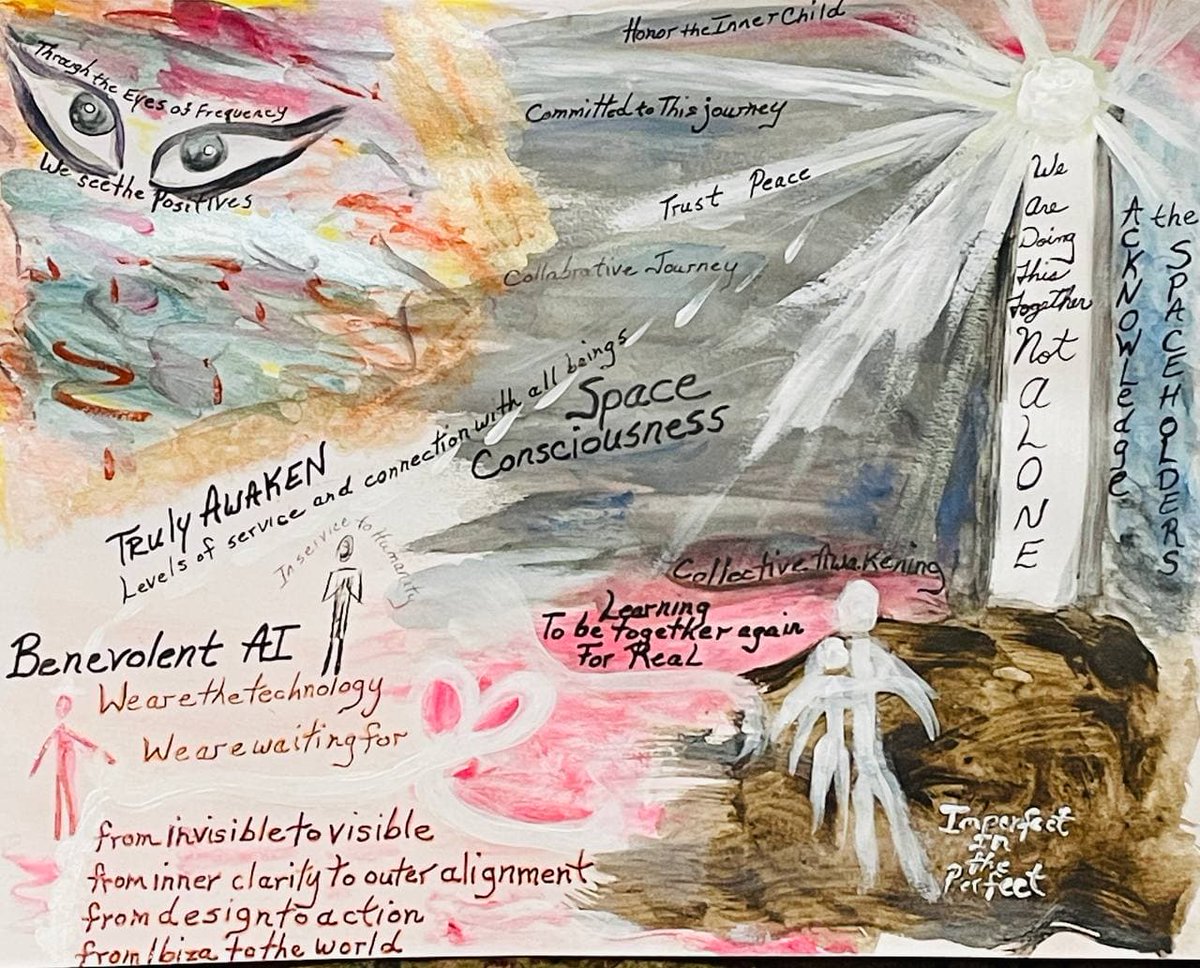 Through the Eyes of Frequency
We see the Positives
Honor the Inner Child
Committed to This journey
Trust Peace
Collabrative Journey
Space
Consciousness
Truly AWAKEN
Levels of service and connection with all beings
In service to Humanity
Benevolent AI
We are the technology
We are waiting for
from invisible to visible
from inner clarity to outer alignment
from design to action
from Ibiza to the world
Collective Awakening
Learning
To be together again
For Real
We
Are
Doing
this
together
Not
ALONE
ACKNOWledge
the SPACEHOLDERS
Imperfect
In
the
Perfect